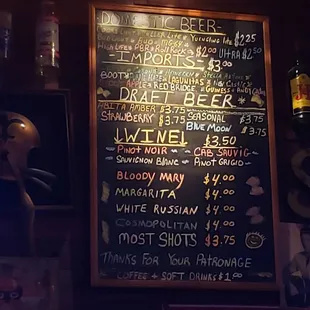 DOMESTIC BEER
MILLER LITE • YUENGLING
BUD LIGHT $2.25
HIGH LIFE • PBR • ROLLING ROCK $2.00 ULTRA $2.50
-IMPORTS-
$3.00
HEINEKEN • STELLA ARTOIS
LAGUNITAS
APPLE • RED BRIDGE • GUINNESS
DRAFT BEER
ABITA AMBER $3.75 SEASONAL $3.75
STRAWBERRY $3.75 BLUE MOON $3.75
↓WINE↓ $3.50
• PINOT NOIR • CAB SAUVIG
• SAUVIGNON BLANC • PINOT GRIGIO
BLOODY MARY $4.00
MARGARITA $4.00
WHITE RUSSIAN $4.00
COSMOPOLITAN $4.00
MOST SHOTS $3.75
THANKS FOR YOUR PATRONAGE
COFFEE + SOFT DRINKS $1.00